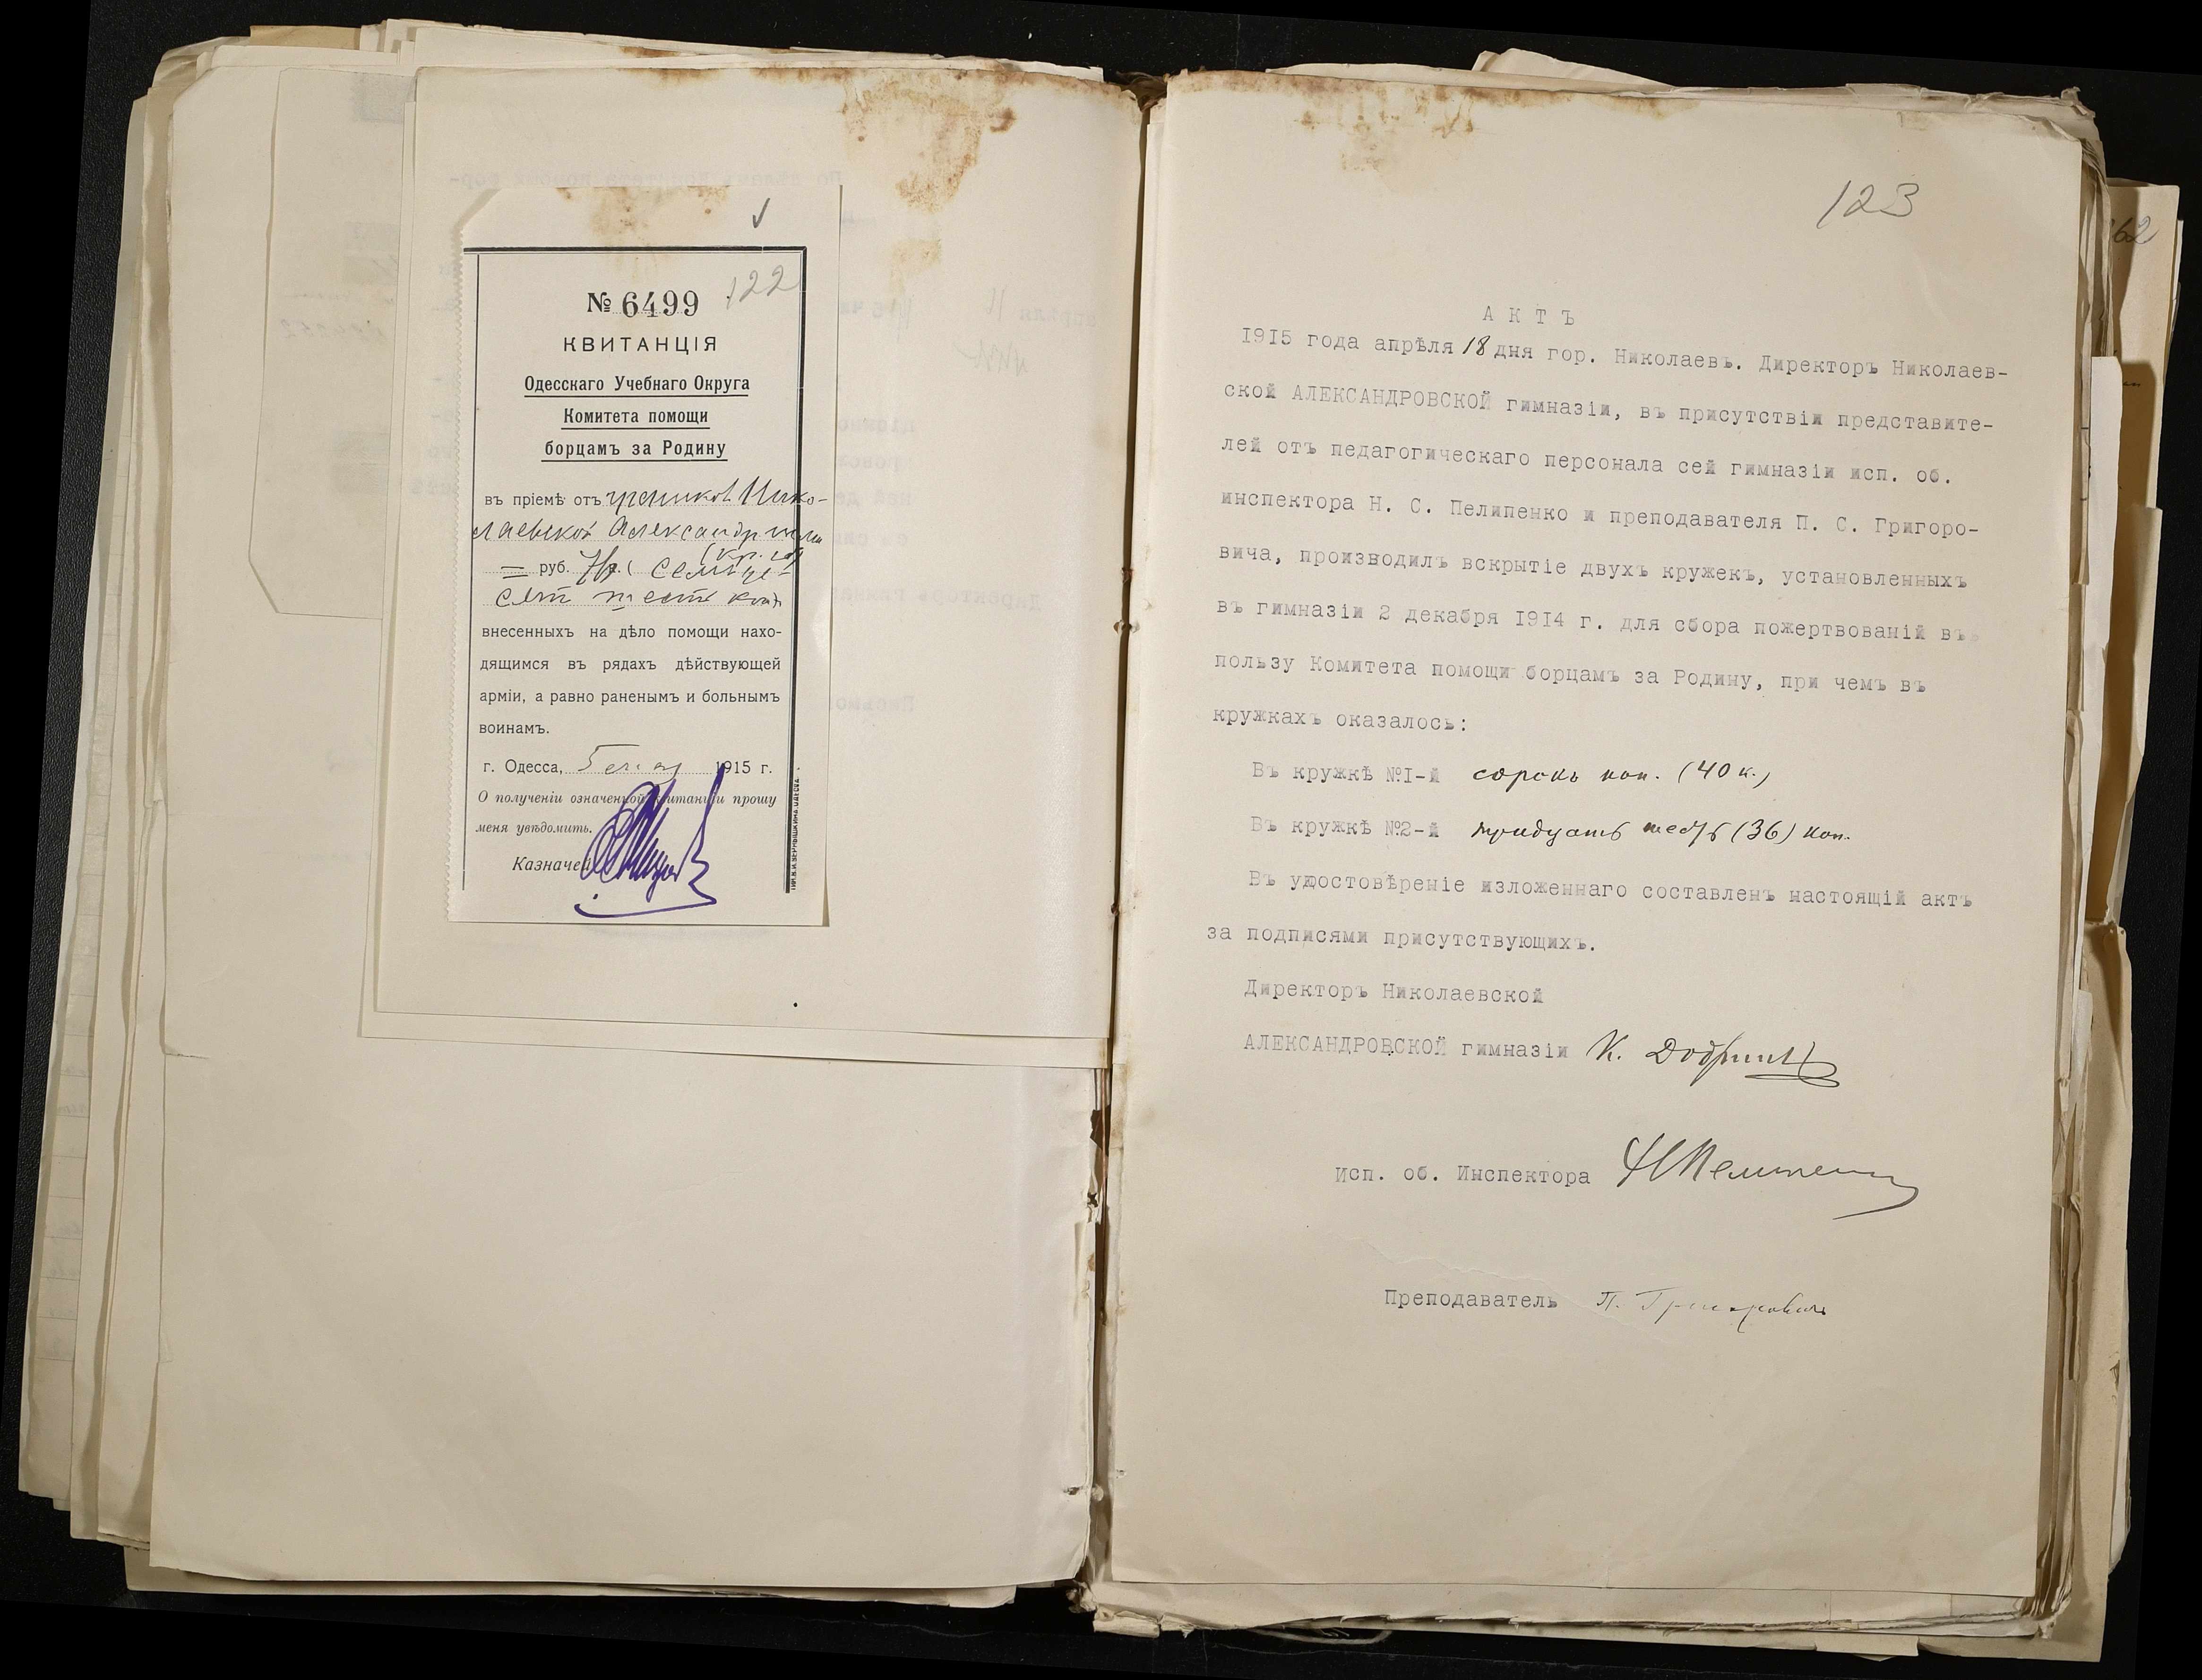 ✓
122
№ 6499
КВИТАНЦІЯ
Одесскаго Учебнаго Округа
Комитета помощи
борцамъ за Родину
въ пріемѣ отъ Нико-
лаевской Александр
= руб. 76 к. ( семьде-
сят шесть коп
внесенныхъ на дѣло помощи нахо-
дящимся въ рядахъ дѣйствующей
арміи, а равно раненымъ и больнымъ
воинамъ.
г. Одесса, 5 мая 1915 г.
О полученіи означенной квитанціи прошу
меня увѣдомить.
Казначей
123
АКТЪ
1915 года апрѣля 18 дня гор. Николаевъ. Директоръ Николаев-
ской АЛЕКСАНДРОВСКОЙ гимназіи, въ присутствіи представите-
лей отъ педагогическаго персонала сей гимназіи исп. об.
инспектора Н. С. Пелипенко и преподавателя П. С. Григоро-
вича, производилъ вскрытіе двухъ кружекъ, установленныхъ
въ гимназіи 2 декабря 1914 г. для сбора пожертвованій въ
пользу Комитета помощи борцамъ за Родину, при чемъ въ
кружкахъ оказалось:
Въ кружкѣ №I-й сорокъ коп. (40 к.)
Въ кружкѣ №2-й тридцать шесть (36) коп.
Въ удостовѣреніе изложеннаго составленъ настоящій актъ
за подписями присутствующихъ.
Директоръ Николаевской
АЛЕКСАНДРОВСКОЙ гимназіи К.
Исп. об. Инспектора Н Пелипенко
Преподаватель П. Григоровичъ
162